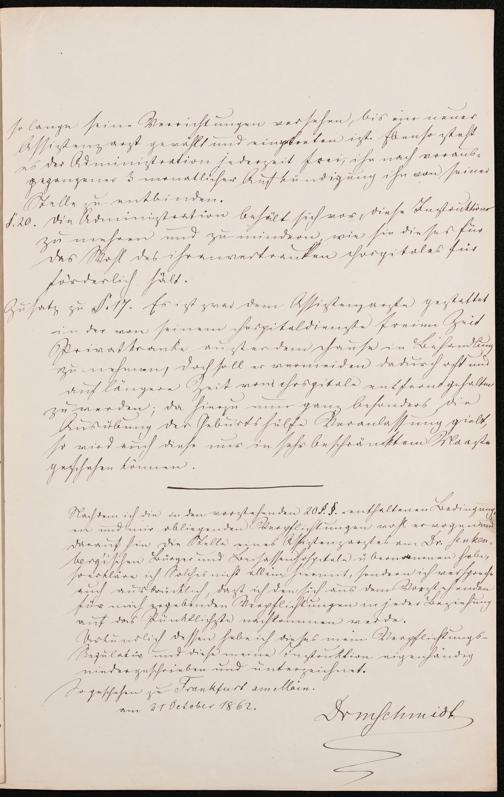 so lange seine Verrichtungen versehen, bis ein neuer
Assistenzarzt gewählt und eingetreten ist. Ebenso steht
es der Administration jederzeit frei, ihn nach voraus-
gegangener 3 monatlicher Aufkündigung ihn von seiner
Stelle zu entbinden.
§. 20. Die Administration behält sich vor, diese Instruktion
zu mehren und zu mindern, wie sie dieses für
das Wohl des ihr anvertrauten Hospitales für
förderlich hält.
Zusatz zu §. 17. Es ist zwar dem Assistenzarzte gestattet
in der von seinem Hospitaldienste freien Zeit
Privatkranke ausser dem Hause in Behandlung
zu nehmen, doch soll er vermeiden dadurch oft und
auf längere Zeit vom Hospitale entfernt gehalten
zu werden; da hierzu nun ganz besonders die
Ausübung der Geburtshülfe Veranlassung giebt,
so wird auch diese nur in sehr beschränktem Maasse
geschehen können.
Nachdem ich die in den vorstehenden 20 §.§. enthaltenen Bedingung-
en und mir obliegenden Verpflichtungen wohl erwogen und
darauf hin die Stelle eines Assistenzarztes am Dr. Senken-
bergischen Bürger und Beisassenhospitale übernommen habe,
so erkläre ich Solches nicht allein hiermit, sondern ich verspreche
auch ausdrücklich, dass ich den sich aus dem Vorstehenden
für mich ergebenden Verpflichtungen in jeder Beziehung
auf das Pünktlichste nachkommen werde.
Urkundlich dessen habe ich dieses mein Verpflichtungs-
Regulativ und diese meine Instruktion eigenhändig
niedergeschrieben und unterzeichnet.
So geschehen zu Frankfurt am Main.
am 31 October 1862.
Dr m Schmidt